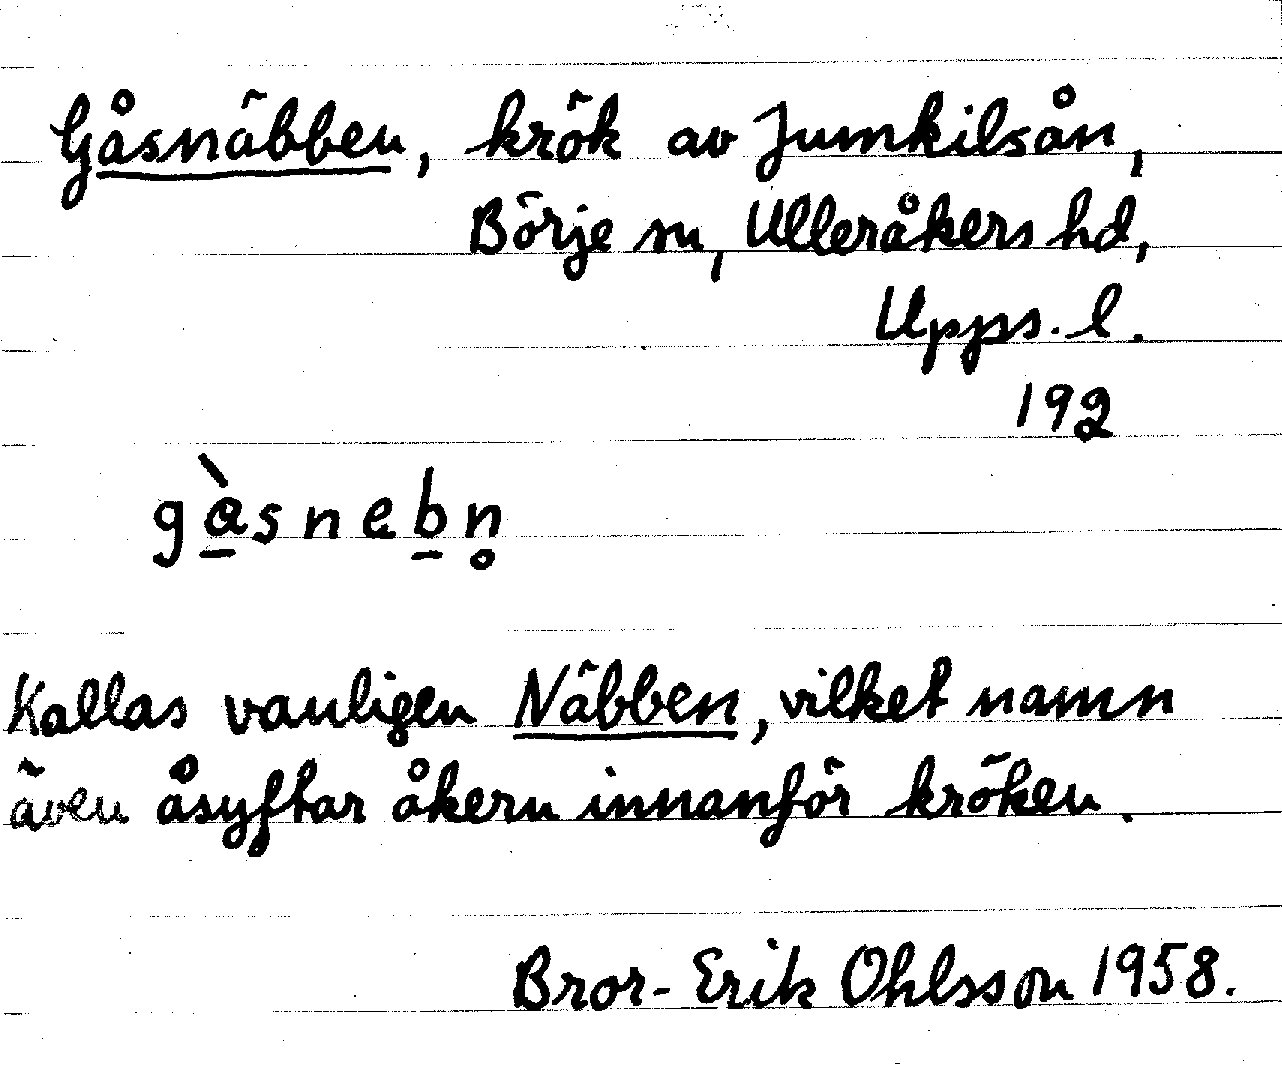 Gåsnäbben, krök av Jumkilsån,
Börje sn, Ulleråkers hd,
Upps. l.
192
gàsnebn̥
Kallas vanligen Näbben, vilket namn
även åsyftar åkern innanför kröken.
Bror-Erik Ohlsson 1958.